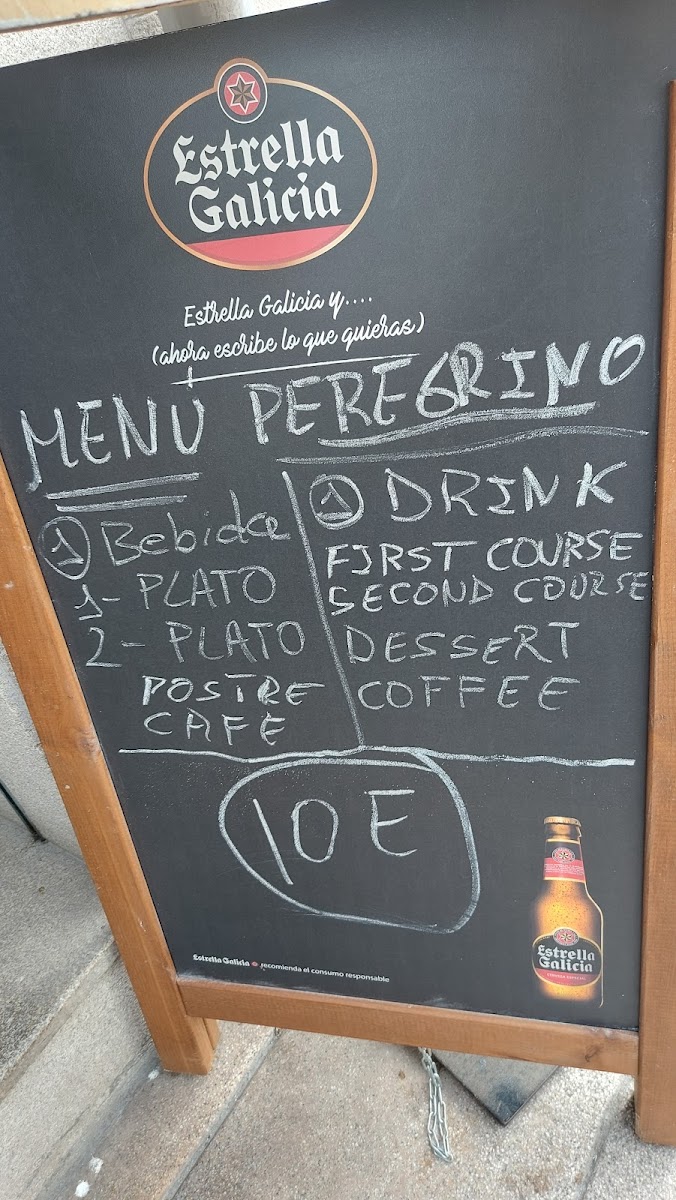 Estrella
Galicia
Estrella Galicia y....
(ahora escribe lo que quieras)
MENÚ PEREGRINO
1 Bebida
1- PLATO
2- PLATO
POSTRE
CAFE
1 DRINK
FIRST COURSE
SECOND COURSE
DESSERT
COFFEE
10 E
Estrella
Galicia
Estrella Galicia recomienda el consumo responsable